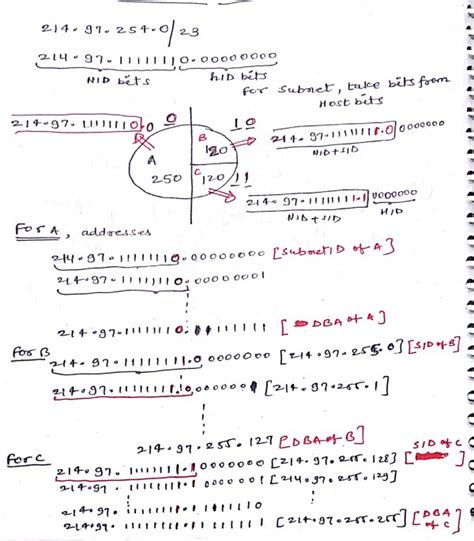 214.97.254.0/23
214.97.1111111 0.00000000
NID bits
hID bits
For Subnet, take bits from
Host bits
214.97.1111111 0.0
0
10
B
120
A
250
C
120
11
214.97.11111111.0 0000000
NID+SID
214.97.11111111.1 0000000
NID+SID
HID
For A, addresses
214.97.1111111 0.00000000 [Subnet ID of A]
214.97.1111111 0.00000001
214.97.1111111 0.11111111 [DBA of A]
For B
214.97.11111111.0 0000000 [214.97.255.0] [SID of B]
214.97.11111111.0 0000001 [214.97.255.1]
214.97.255.127 [DBA of B]
For C
214.97.11111111.1 0000000 [214.97.255.128] [SID of C]
214.97.11111111.1 0000001 [214.97.255.129]
214.97.11111111.1 1111111 [214.97.255.255] [DBA of C]